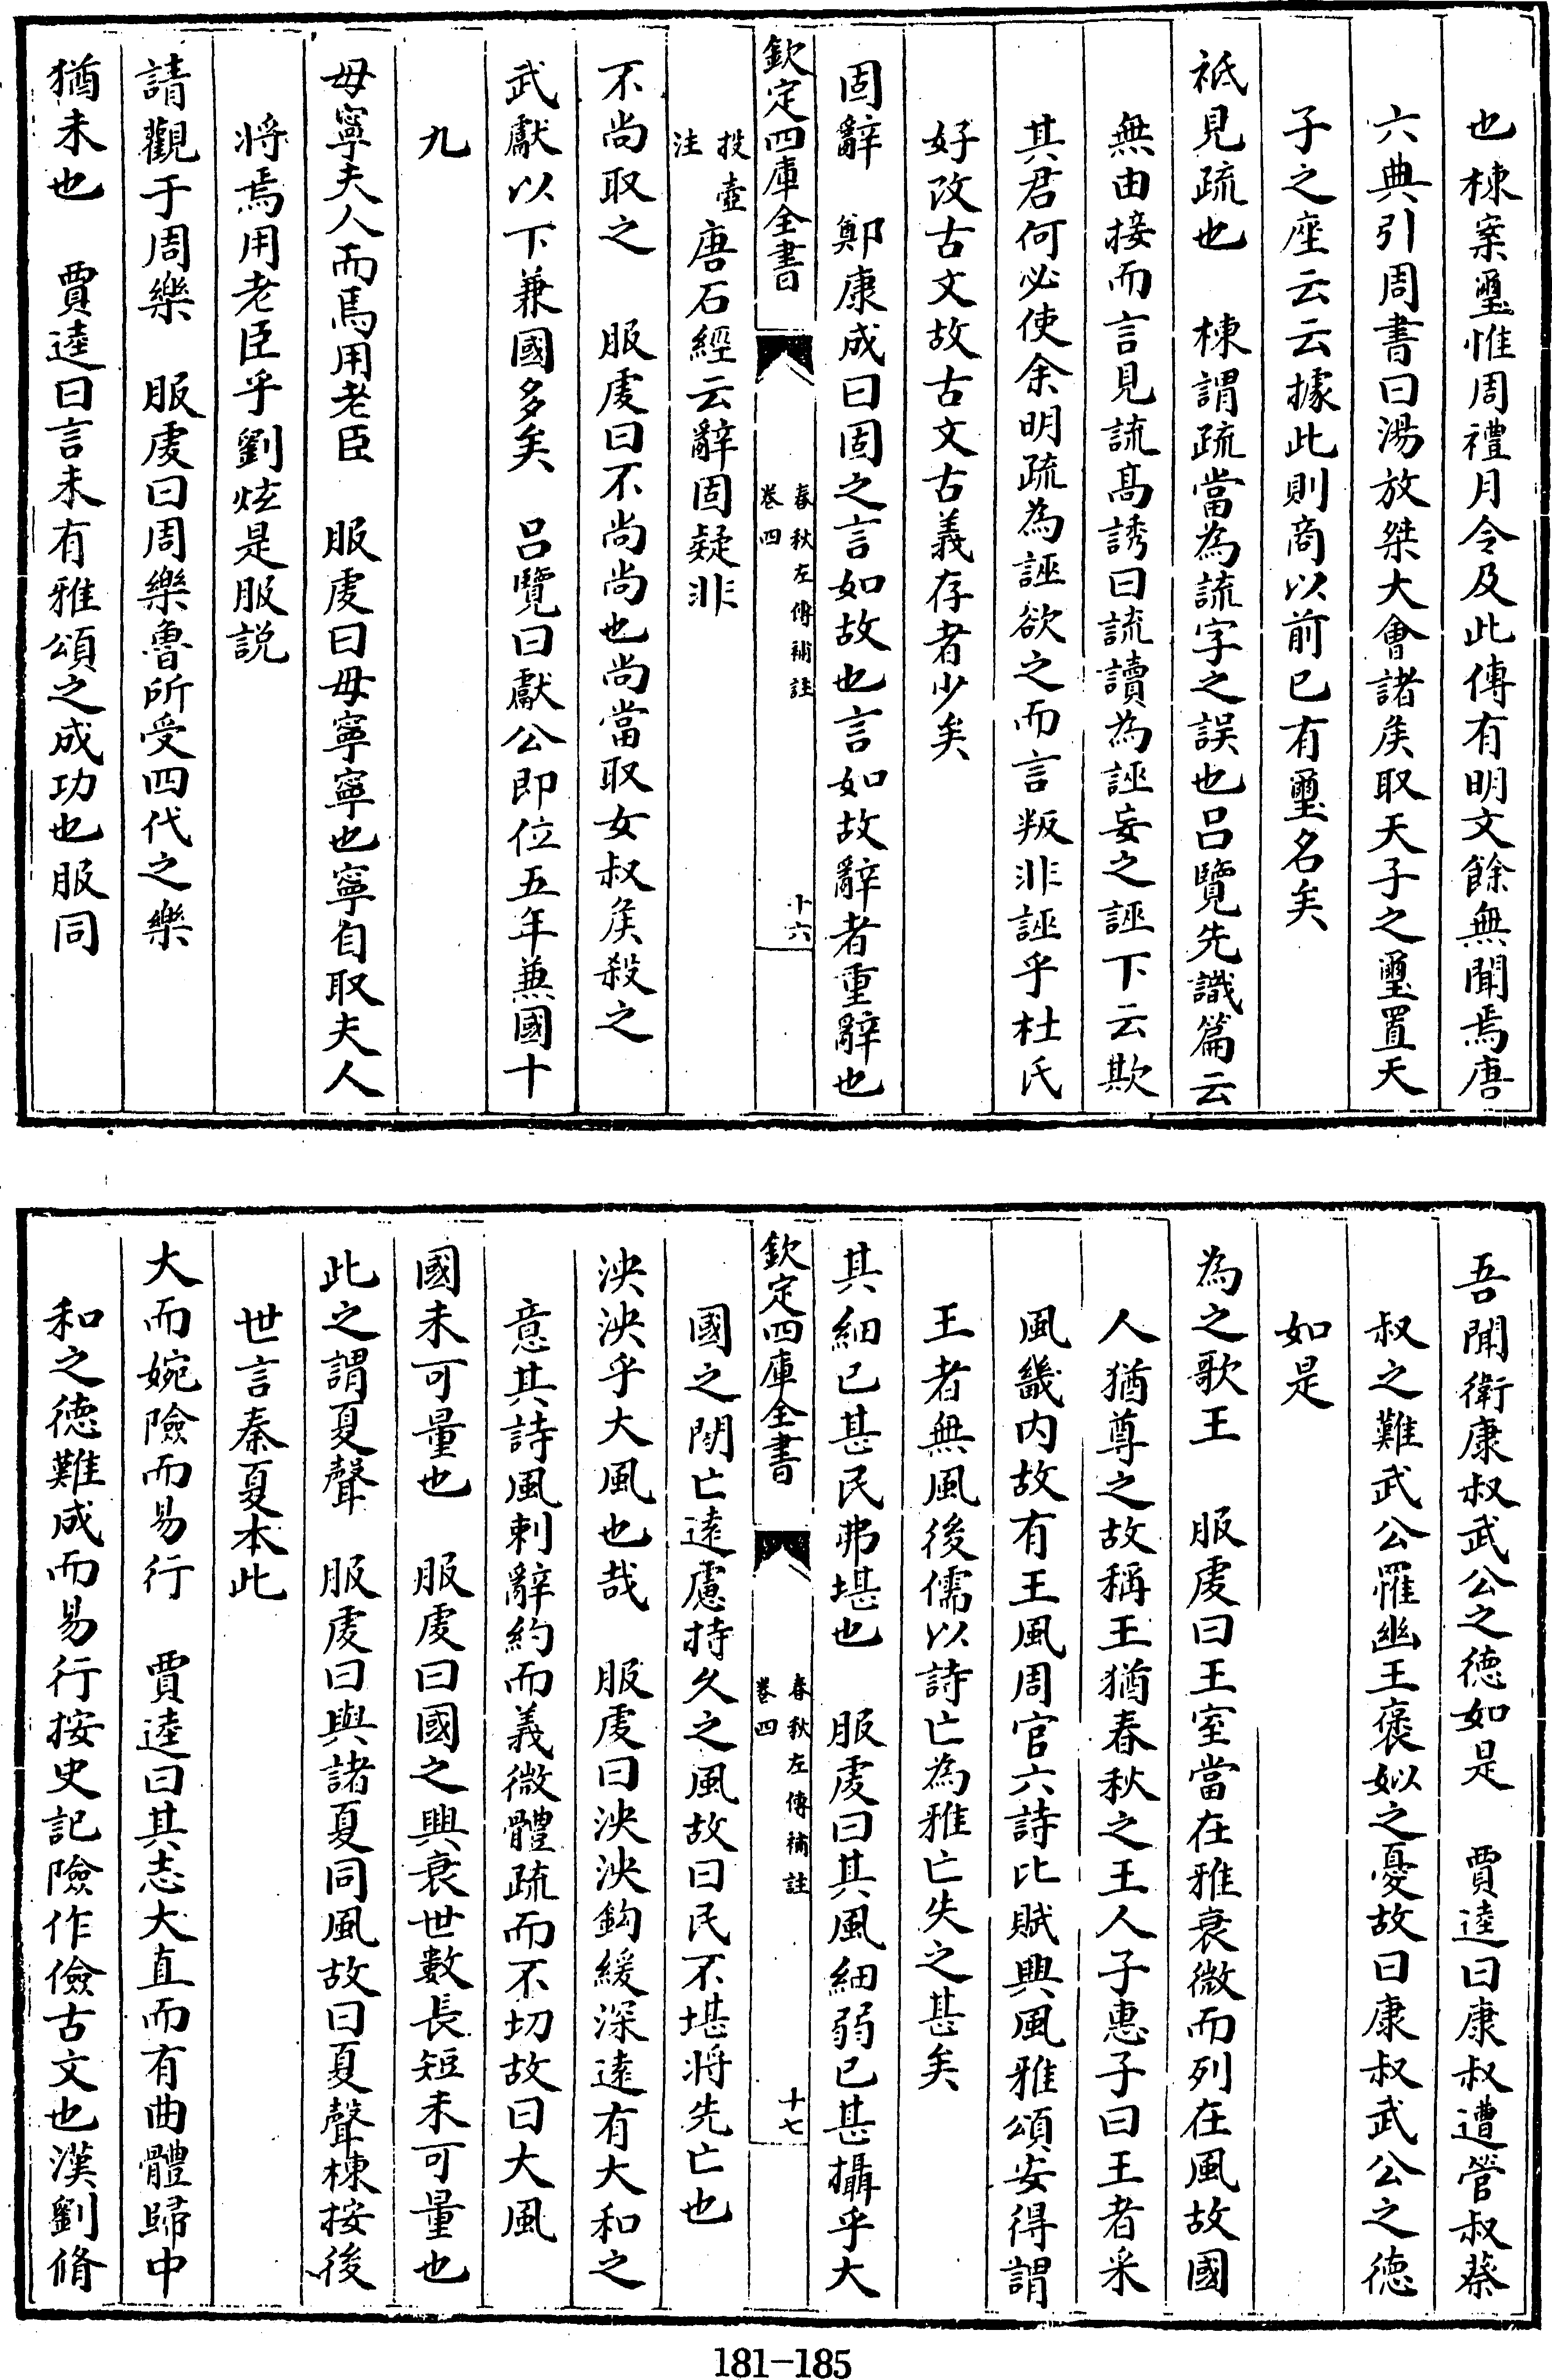 也棟案璽惟周禮月令及此傳有明文餘無聞焉唐
六典引周書曰湯放桀大會諸矦取天子之璽置天
子之座云云據此則商以前已有璽名矣
祇見疏也　棟謂疏當為䟽字之誤也呂覽先識篇云
無由接而言見䟽高誘曰䟽讀為誣妄之誣下云欺
其君何必使余明疏為誣欲之而言叛非誣乎杜氏
好改古文故古文古義存者少矣
固辭　鄭康成曰固之言如故也言如故辭者重辭也
欽定四庫全書
春秋左傳補註
卷四
十六
投壺注唐石經云辭固疑非
不尚取之　服虔曰不尚尚也尚當取女叔矦殺之
武獻以下兼國多矣　呂覽曰獻公即位五年兼國十
九
毋寧夫人而焉用老臣　服虔曰毋寧寧也寧自取夫人
將焉用老臣乎劉炫是服説
請觀于周樂　服虔曰周樂魯所受四代之樂
猶未也　賈逵曰言未有雅頌之成功也服同
吾聞衛康叔武公之德如是　賈逵曰康叔遭管叔蔡
叔之難武公罹幽王褒姒之憂故曰康叔武公之德
如是
為之歌王　服虔曰王室當在雅衰微而列在風故國
人猶尊之故稱王猶春秋之王人子惠子曰王者采
風畿内故有王風周官六詩比賦興風雅頌安得謂
王者無風後儒以詩亡為雅亡失之甚矣
其細已甚民弗堪也　服虔曰其風細弱已甚攝乎大
欽定四庫全書
春秋左傳補註
卷四
十七
國之閒亡遠慮持久之風故曰民不堪將先亡也
泱泱乎大風也哉　服虔曰泱泱鈎緩深遠有大和之
意其詩風刺辭約而義微體疏而不切故曰大風
國未可量也　服虔曰國之興衰世數長短未可量也
此之謂夏聲　服虔曰與諸夏同風故曰夏聲棟按後
世言秦夏本此
大而婉險而易行　賈逵曰其志大直而有曲體歸中
和之德難成而易行按史記險作儉古文也漢劉脩
181-185